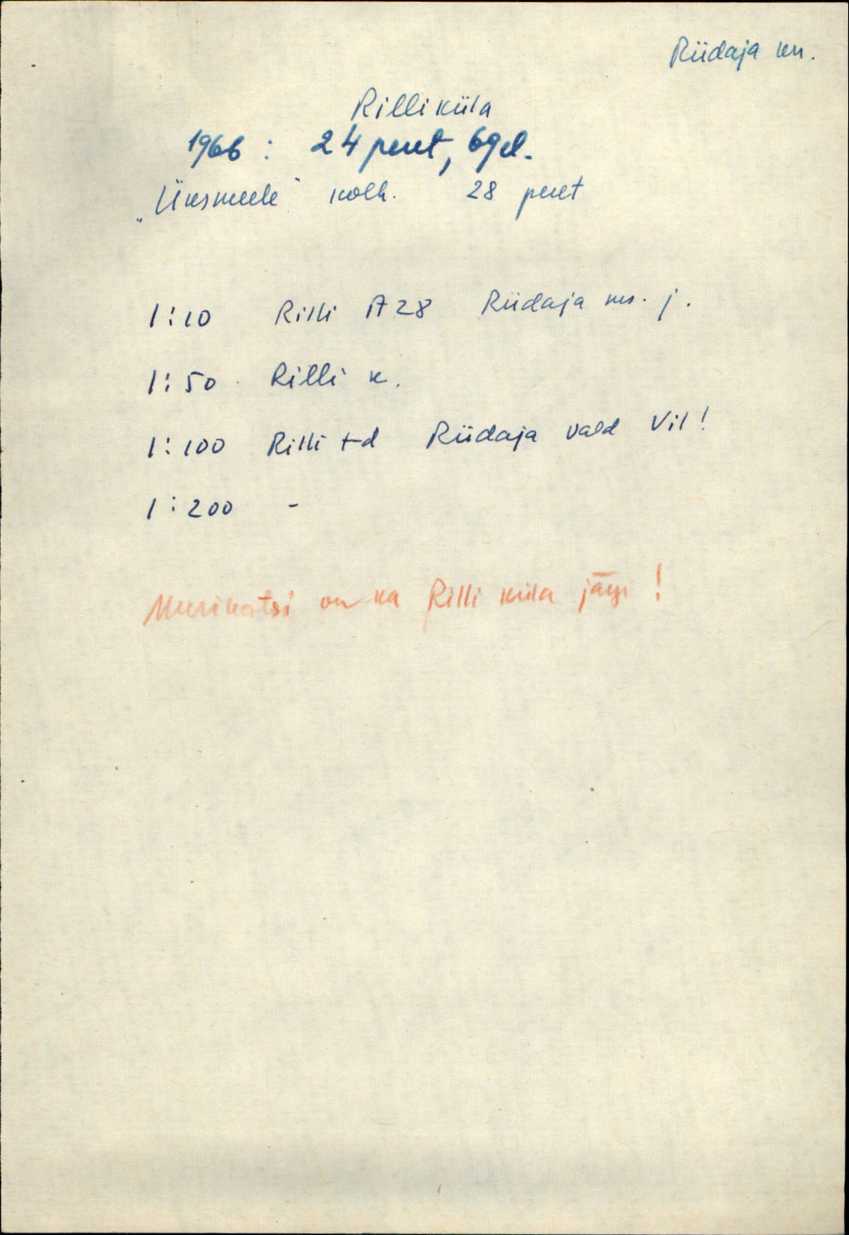 Riidaja kn.
Rilli küla
1966 : 24 peret, 69 el.
„Üksmeele" kolh. 28 peret
1:10 Rilli A 28 Riidaja kn. j.
1:50 Rilli k.
1:100 Rilli t-d Riidaja vald Vil!
1:200 -
on ka Rilli küla järgi !